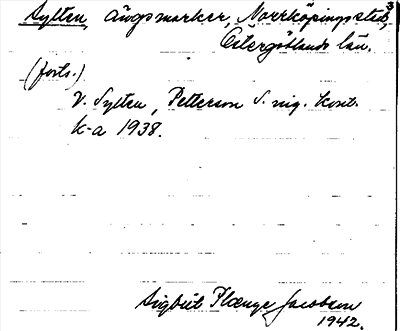 3
Sylten, ängsmarker, Norrköpings stad,
Östergötlands län.
(forts.)
V. Sylten, Petterson S. nig. konst.
k-a 1938.
Sigbrit Plænge Jacobson
1942.